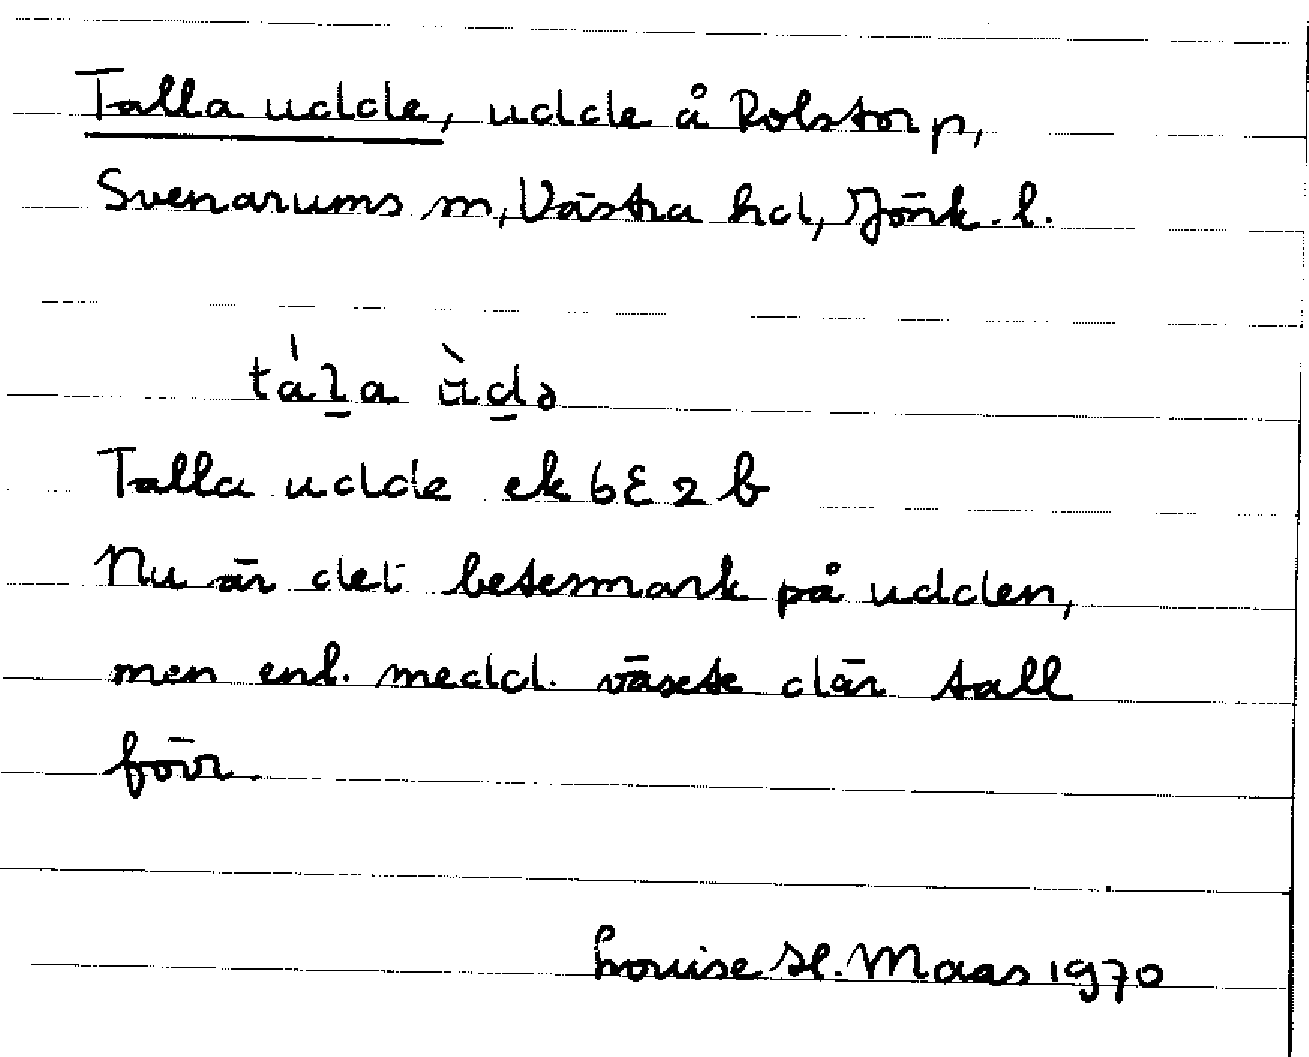 Talla udde, udde å Rolstorp,
Svenarums sn, Västra hd, Jönk. l.
tála ùdə
Talla udde ek 6E2b
Nu är det betesmark på udden,
men enl. medd. växte där tall
förr.
Louise H. Maas 1970